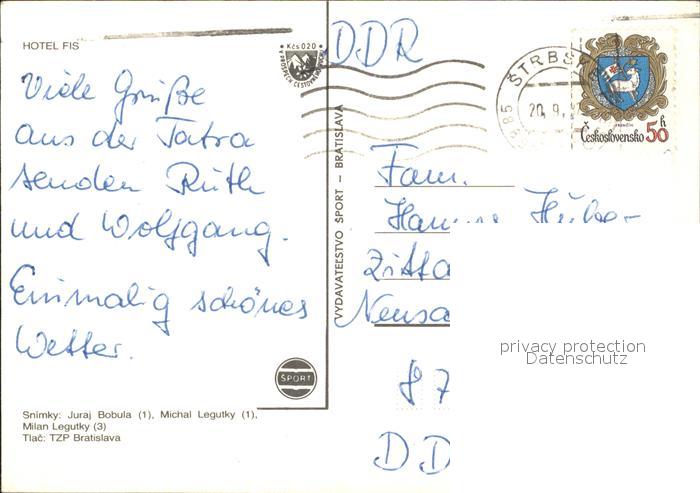 HOTEL FIS
Viele Grüße
aus der Tatra
senden Ruth
und Wolfgang.
Einmalig schönes
Wetter.
ŠPORT
Snímky: Juraj Bobula (1), Michal Legutky (1),
Milan Legutky (3)
Tlač: TZP Bratislava
VYDAVATEĽSTVO ŠPORT – BRATISLAVA
Kčs 020
DDR
ŠTRBSK
985
20. 9.
Československo 50 h
Fam.
Zitta
Neusa
87
DD
privacy protection
Datenschutz